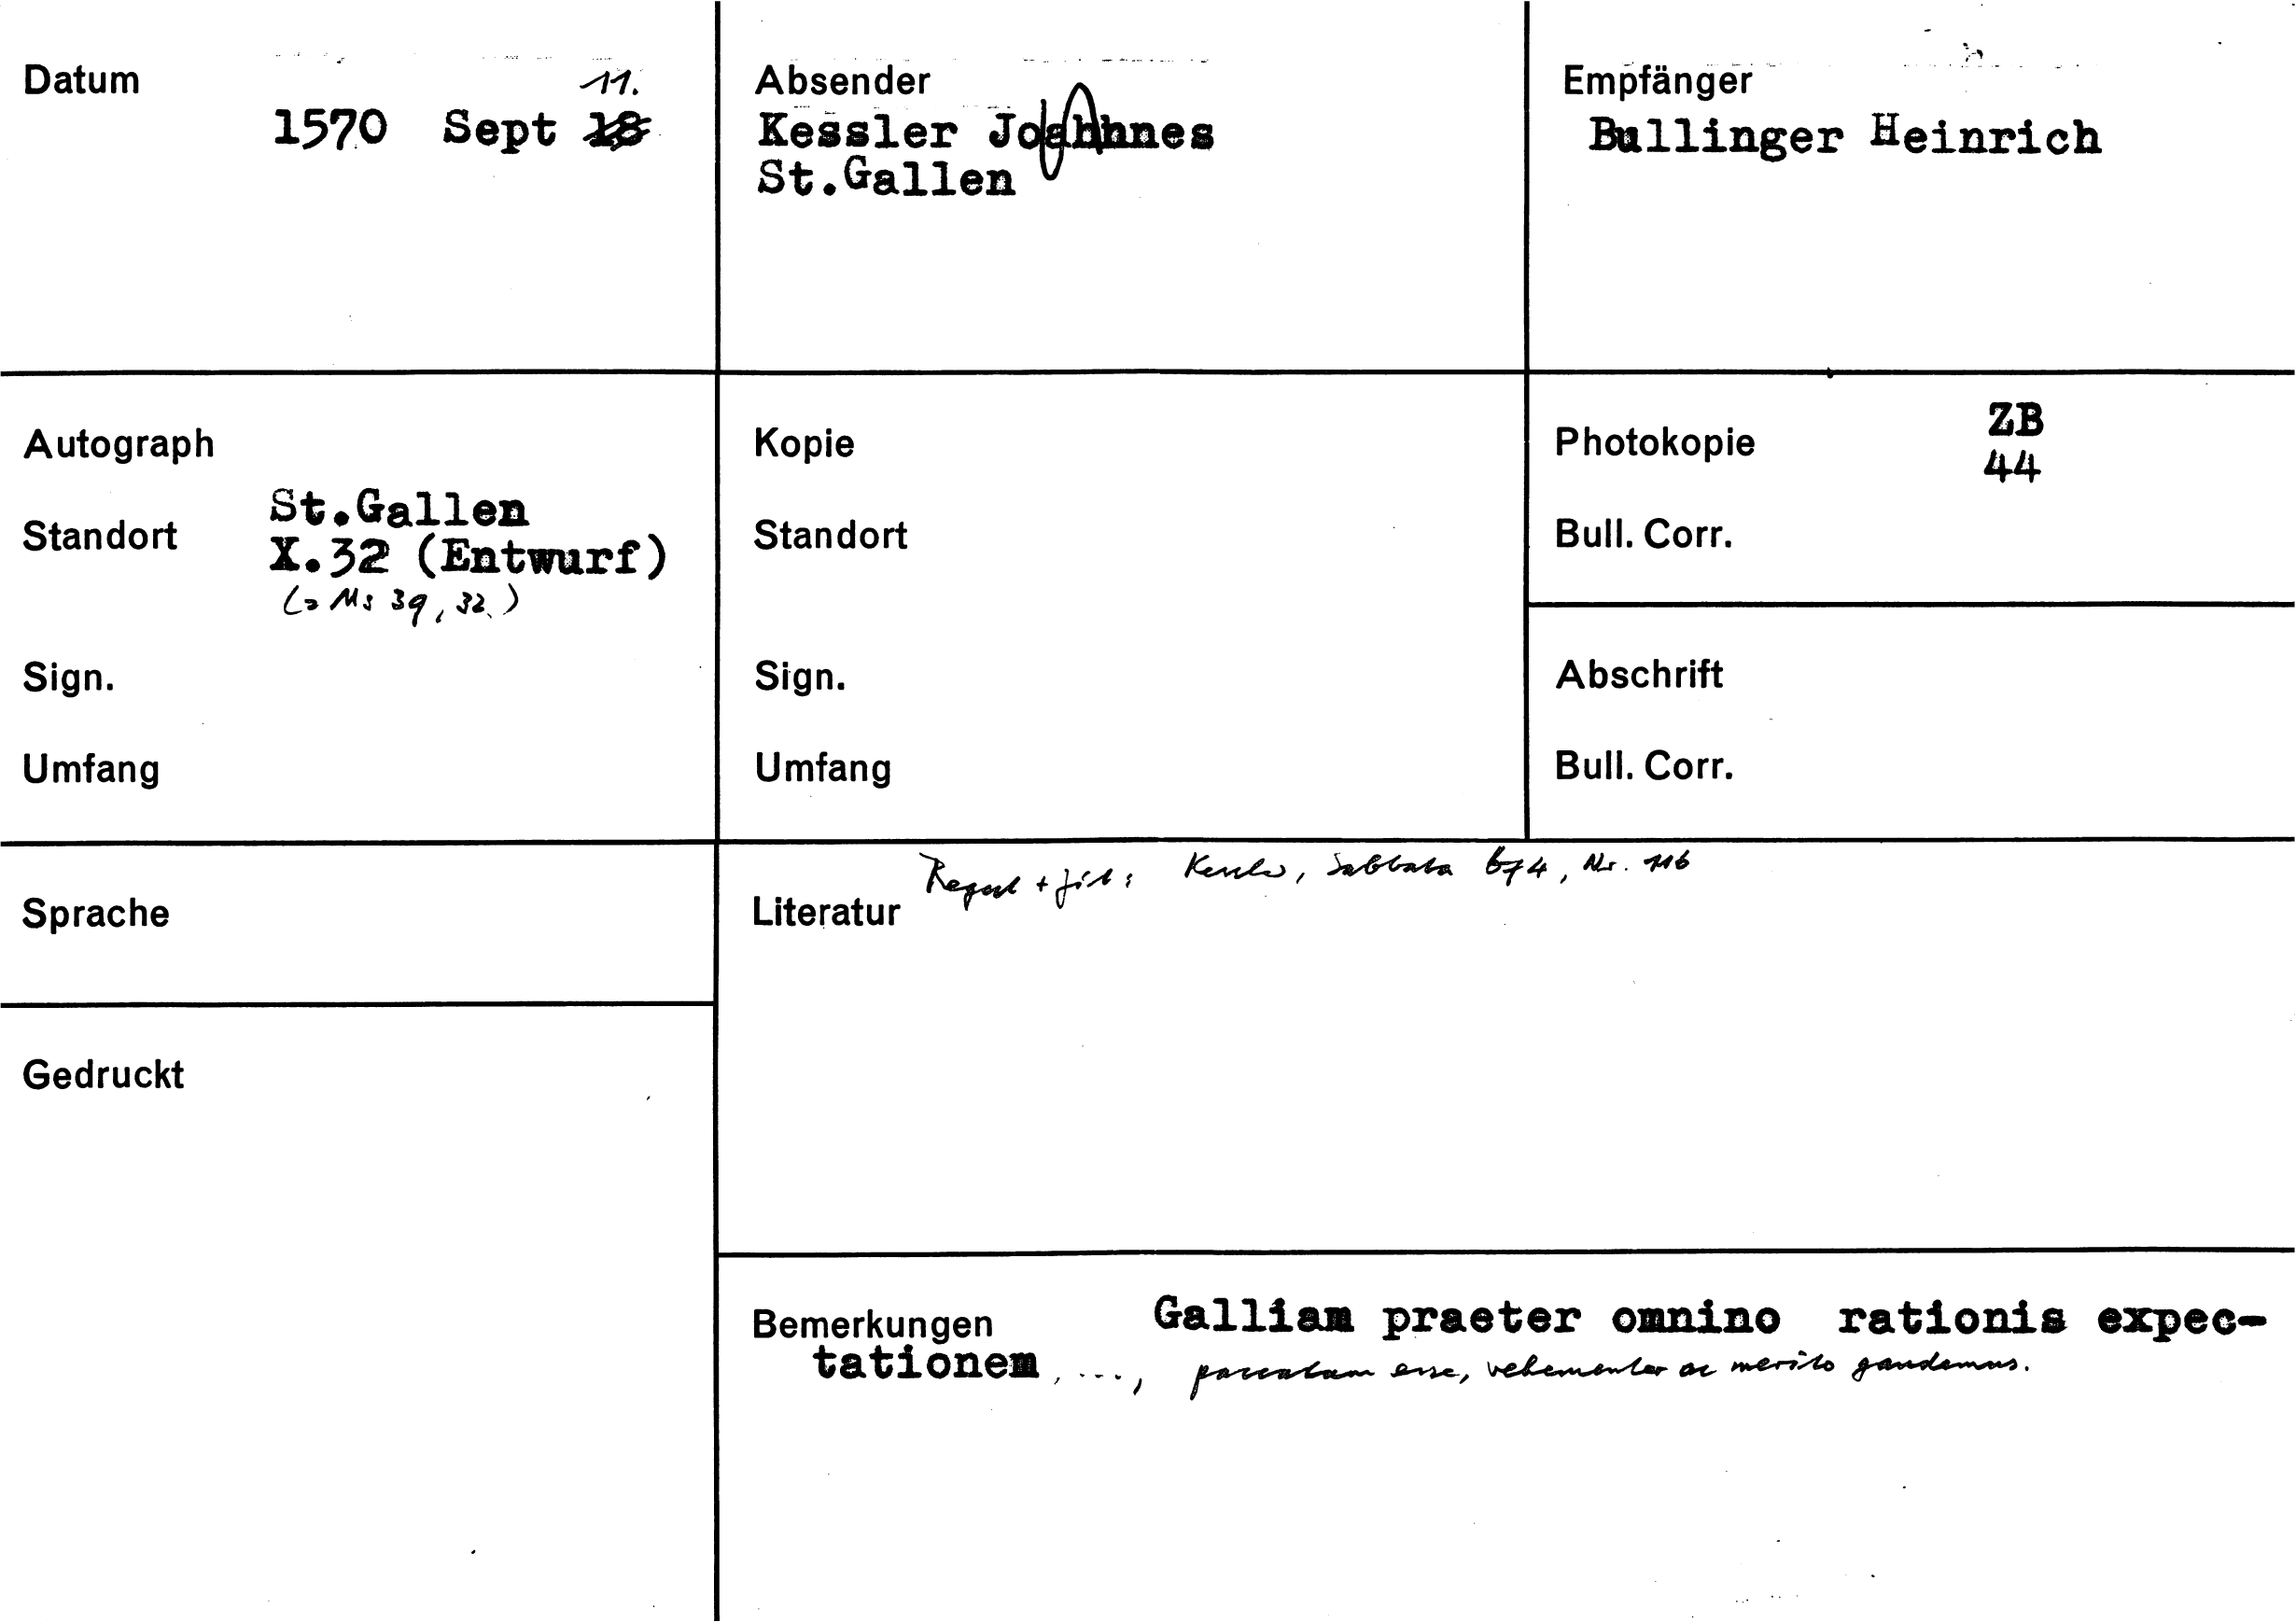 Datum
11.
1570 Sept 18
Absender
Kessler Joahnnes
St.Gallen
Empfänger
Bullinger Heinrich
Autograph
Standort
St.Gallen
X.32 (Entwurf)
(= Ms 39, 32)
Sign.
Umfang
Kopie
Standort
Sign.
Umfang
Photokopie
ZB
44
Bull. Corr.
Abschrift
Bull. Corr.
Sprache
Gedruckt
Literatur
Regest + Kessler, Sabbata 674, Nr. 116
Bemerkungen Galliam praeter omnino rationis expec-
tationem, ...., paccatam esse, vehementer ac merito gaudemus.